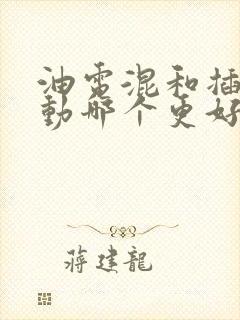 油電混和插
動哪个更好
蔣建龍